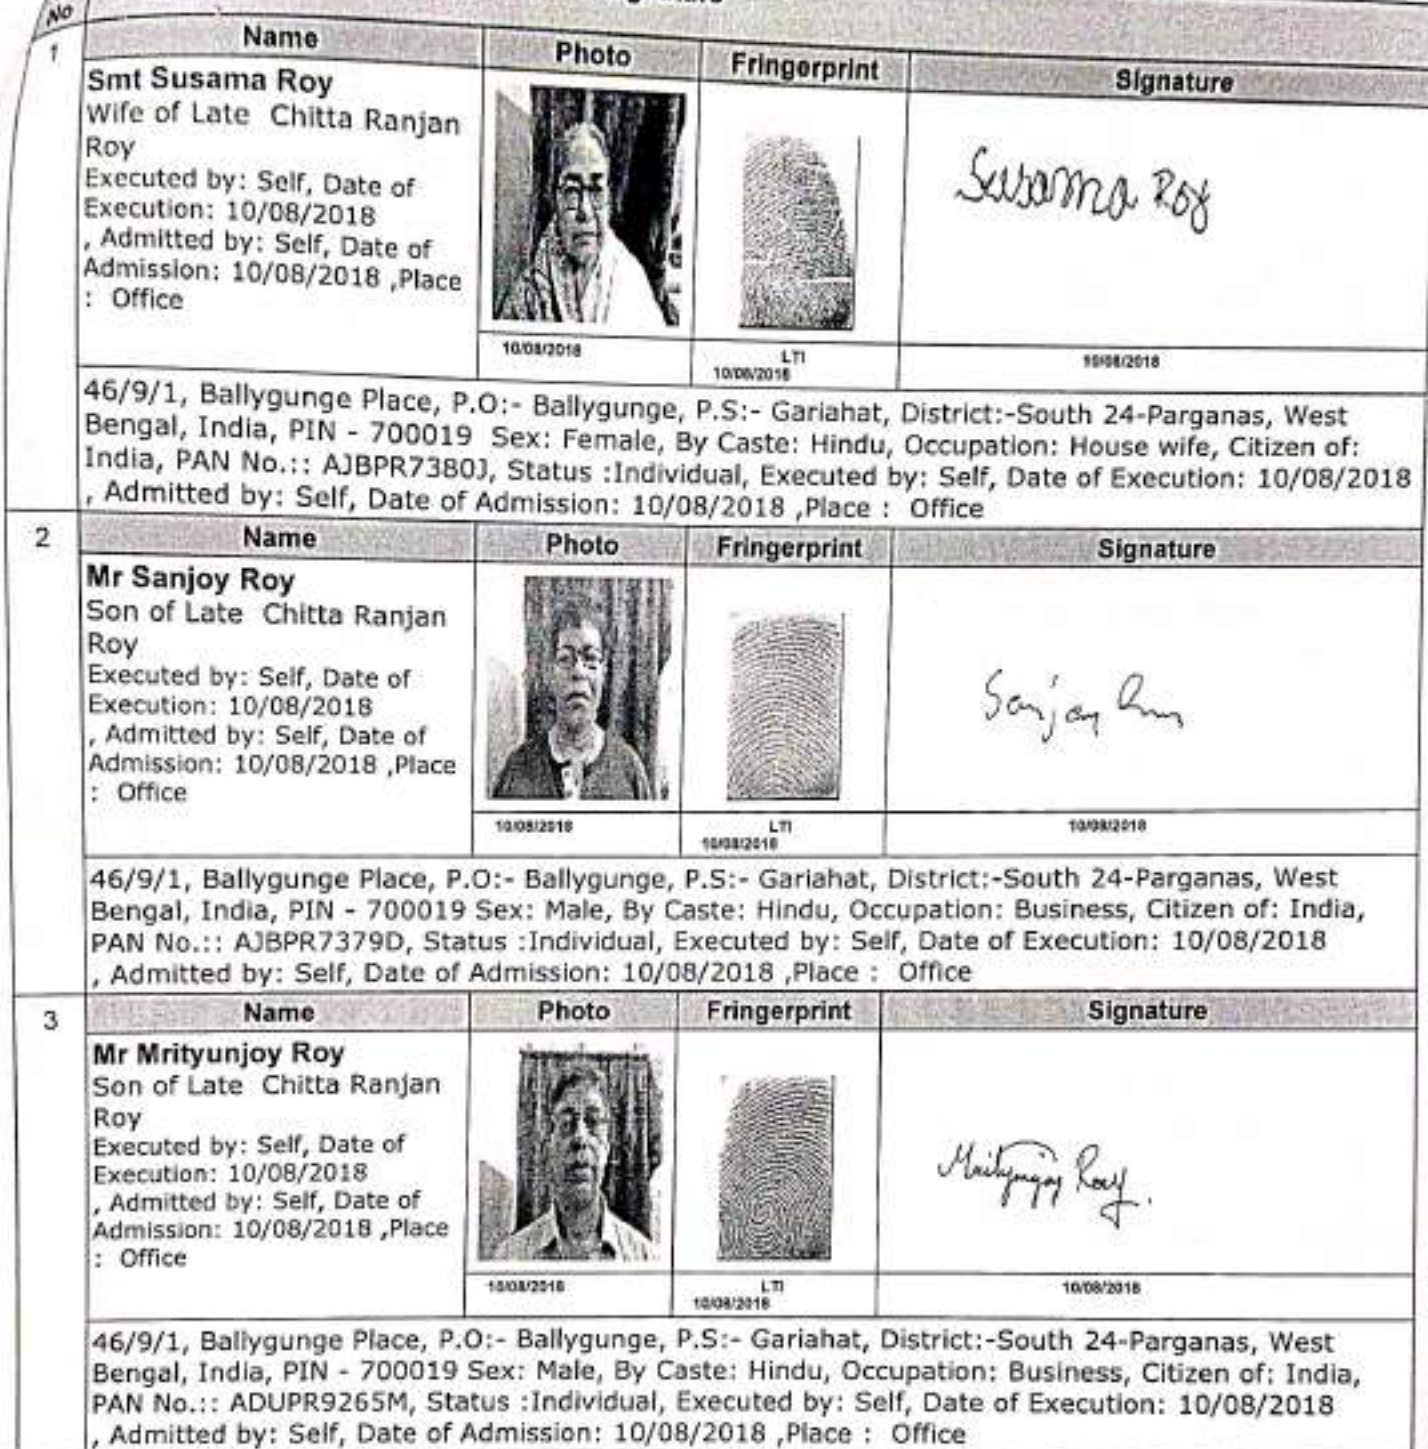 No
1
Name Photo Fringerprint Signature
Smt Susama Roy
Wife of Late Chitta Ranjan
Roy
Executed by: Self, Date of
Execution: 10/08/2018
, Admitted by: Self, Date of
Admission: 10/08/2018 ,Place
: Office
Susama Roy
10/08/2018 LTI 10/08/2018
10/08/2018
46/9/1, Ballygunge Place, P.O:- Ballygunge, P.S:- Gariahat, District:-South 24-Parganas, West
Bengal, India, PIN - 700019 Sex: Female, By Caste: Hindu, Occupation: House wife, Citizen of:
India, PAN No.:: AJBPR7380J, Status :Individual, Executed by: Self, Date of Execution: 10/08/2018
, Admitted by: Self, Date of Admission: 10/08/2018 ,Place : Office
2
Name Photo Fringerprint Signature
Mr Sanjoy Roy
Son of Late Chitta Ranjan
Roy
Executed by: Self, Date of
Execution: 10/08/2018
, Admitted by: Self, Date of
Admission: 10/08/2018 ,Place
: Office
Sanjoy
10/08/2018 LTI 10/08/2018
10/08/2018
46/9/1, Ballygunge Place, P.O:- Ballygunge, P.S:- Gariahat, District:-South 24-Parganas, West
Bengal, India, PIN - 700019 Sex: Male, By Caste: Hindu, Occupation: Business, Citizen of: India,
PAN No.:: AJBPR7379D, Status :Individual, Executed by: Self, Date of Execution: 10/08/2018
, Admitted by: Self, Date of Admission: 10/08/2018 ,Place : Office
3
Name Photo Fringerprint Signature
Mr Mrityunjoy Roy
Son of Late Chitta Ranjan
Roy
Executed by: Self, Date of
Execution: 10/08/2018
, Admitted by: Self, Date of
Admission: 10/08/2018 ,Place
: Office
Mrityunjoy Roy.
10/08/2018 LTI 10/08/2018
10/08/2018
46/9/1, Ballygunge Place, P.O:- Ballygunge, P.S:- Gariahat, District:-South 24-Parganas, West
Bengal, India, PIN - 700019 Sex: Male, By Caste: Hindu, Occupation: Business, Citizen of: India,
PAN No.:: ADUPR9265M, Status :Individual, Executed by: Self, Date of Execution: 10/08/2018
, Admitted by: Self, Date of Admission: 10/08/2018 ,Place : Office